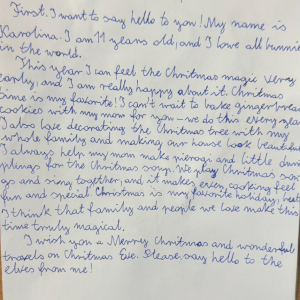 First, I want to say hello to you! My name is
Karolina. I am 11 years old, and I love all bunnies
in the world.
This year I can feel the Christmas magic very
early, and I am really happy about it. Christmas
time is my favorite! I can't wait to bake gingerbread
cookies with my mom for you – we do this every year.
I also love decorating the Christmas tree with my
whole family and making our house look beautiful.
I always help my mom make pierogi and little dum
plings for the Christmas soup. We play Christmas son
gs and sing together, and it makes even cooking feel
fun and special Christmas is my favorite holiday,
I think that family and people we love make this
time truly magical.
I wish you a Merry Christmas and wonderful
travels on Christmas Eve. Please, say hello to the
elves from me!